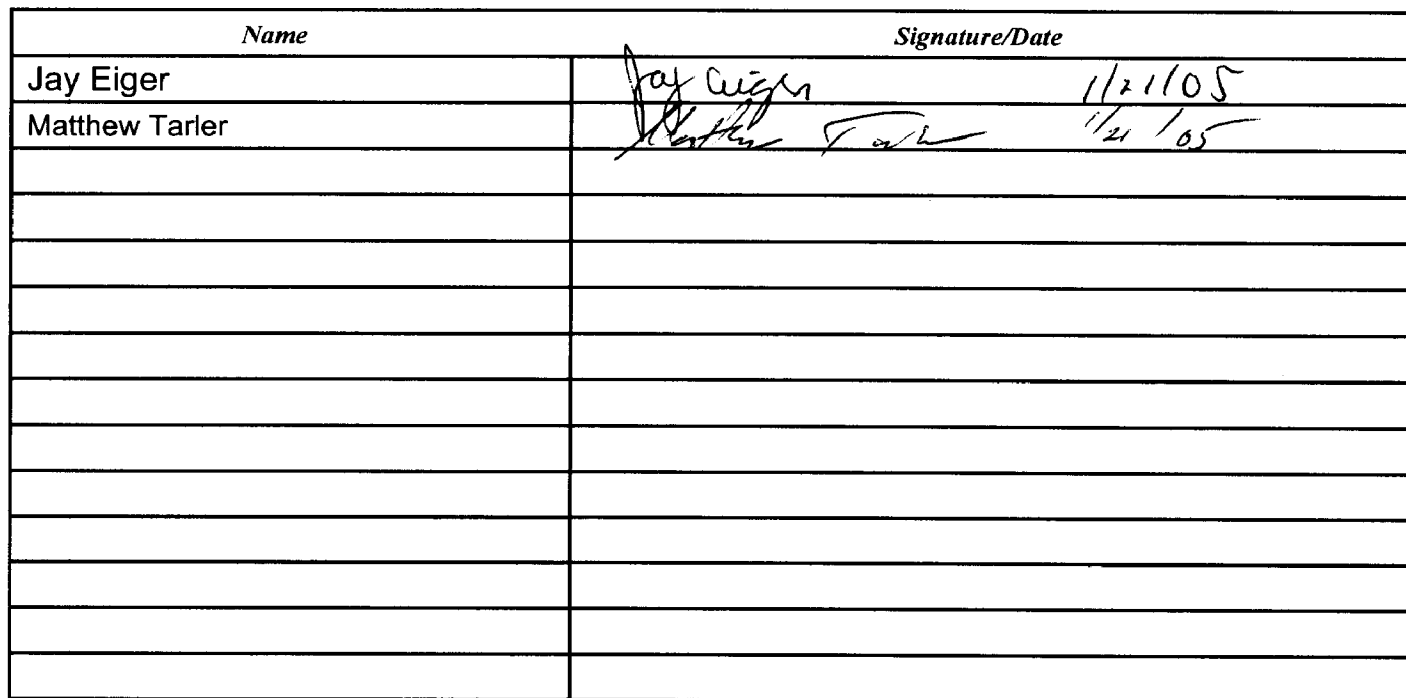 Name Signature/Date
Jay Eiger Jay Eiger 1/21/05
Matthew Tarler Matthew Tarler 1/21/05